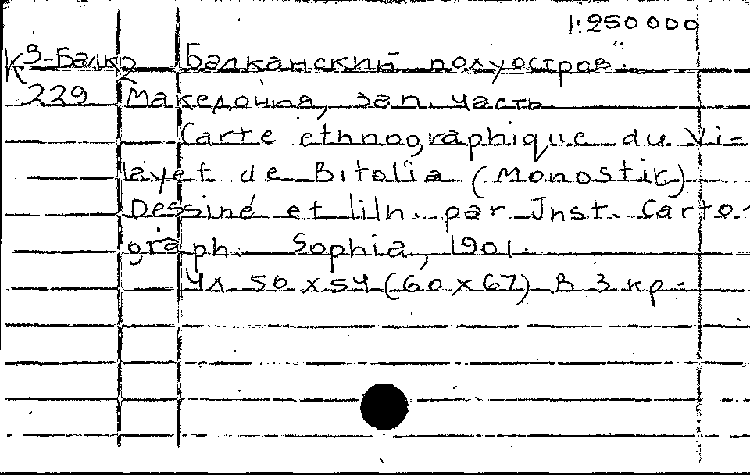 1:250 000
К 3-Балк2 Балканский полуостров.
229 Македония, зап. часть
Carte ethnographique du Vi-
layet de Bitolia (Monostir)
Dessiné et liln. par Jnst. Carto-
graph. Sophia, 1901.
1л 50x54 (60x67) в 3 кр.